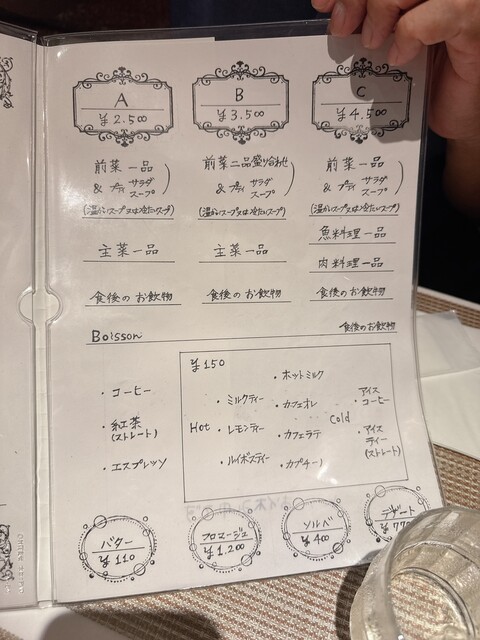 A
¥2.500
前菜一品
& プティ サラダ
スープ
(温かいスープ又は冷たいスープ)
主菜一品
食後のお飲物
B
¥3.500
前菜二品盛り合わせ
& プティ サラダ
スープ
(温かいスープ又は冷たいスープ)
主菜一品
食後のお飲物
C
¥4.500
前菜一品
& プティ サラダ
スープ
(温かいスープ又は冷たいスープ)
魚料理一品
肉料理一品
食後のお飲物
Boisson
食後のお飲物
・コーヒー
・紅茶
(ストレート)
・エスプレッソ
¥150
Hot
・ミルクティー
・レモンティー
・ルイボスティー
・ホットミルク
・カフェオレ
・カフェラテ
・カプチーノ
Cold
・アイス
コーヒー
・アイス
ティー
(ストレート)
バター
¥110
フロマージュ
¥1.200
ソルベ
¥400
デザート